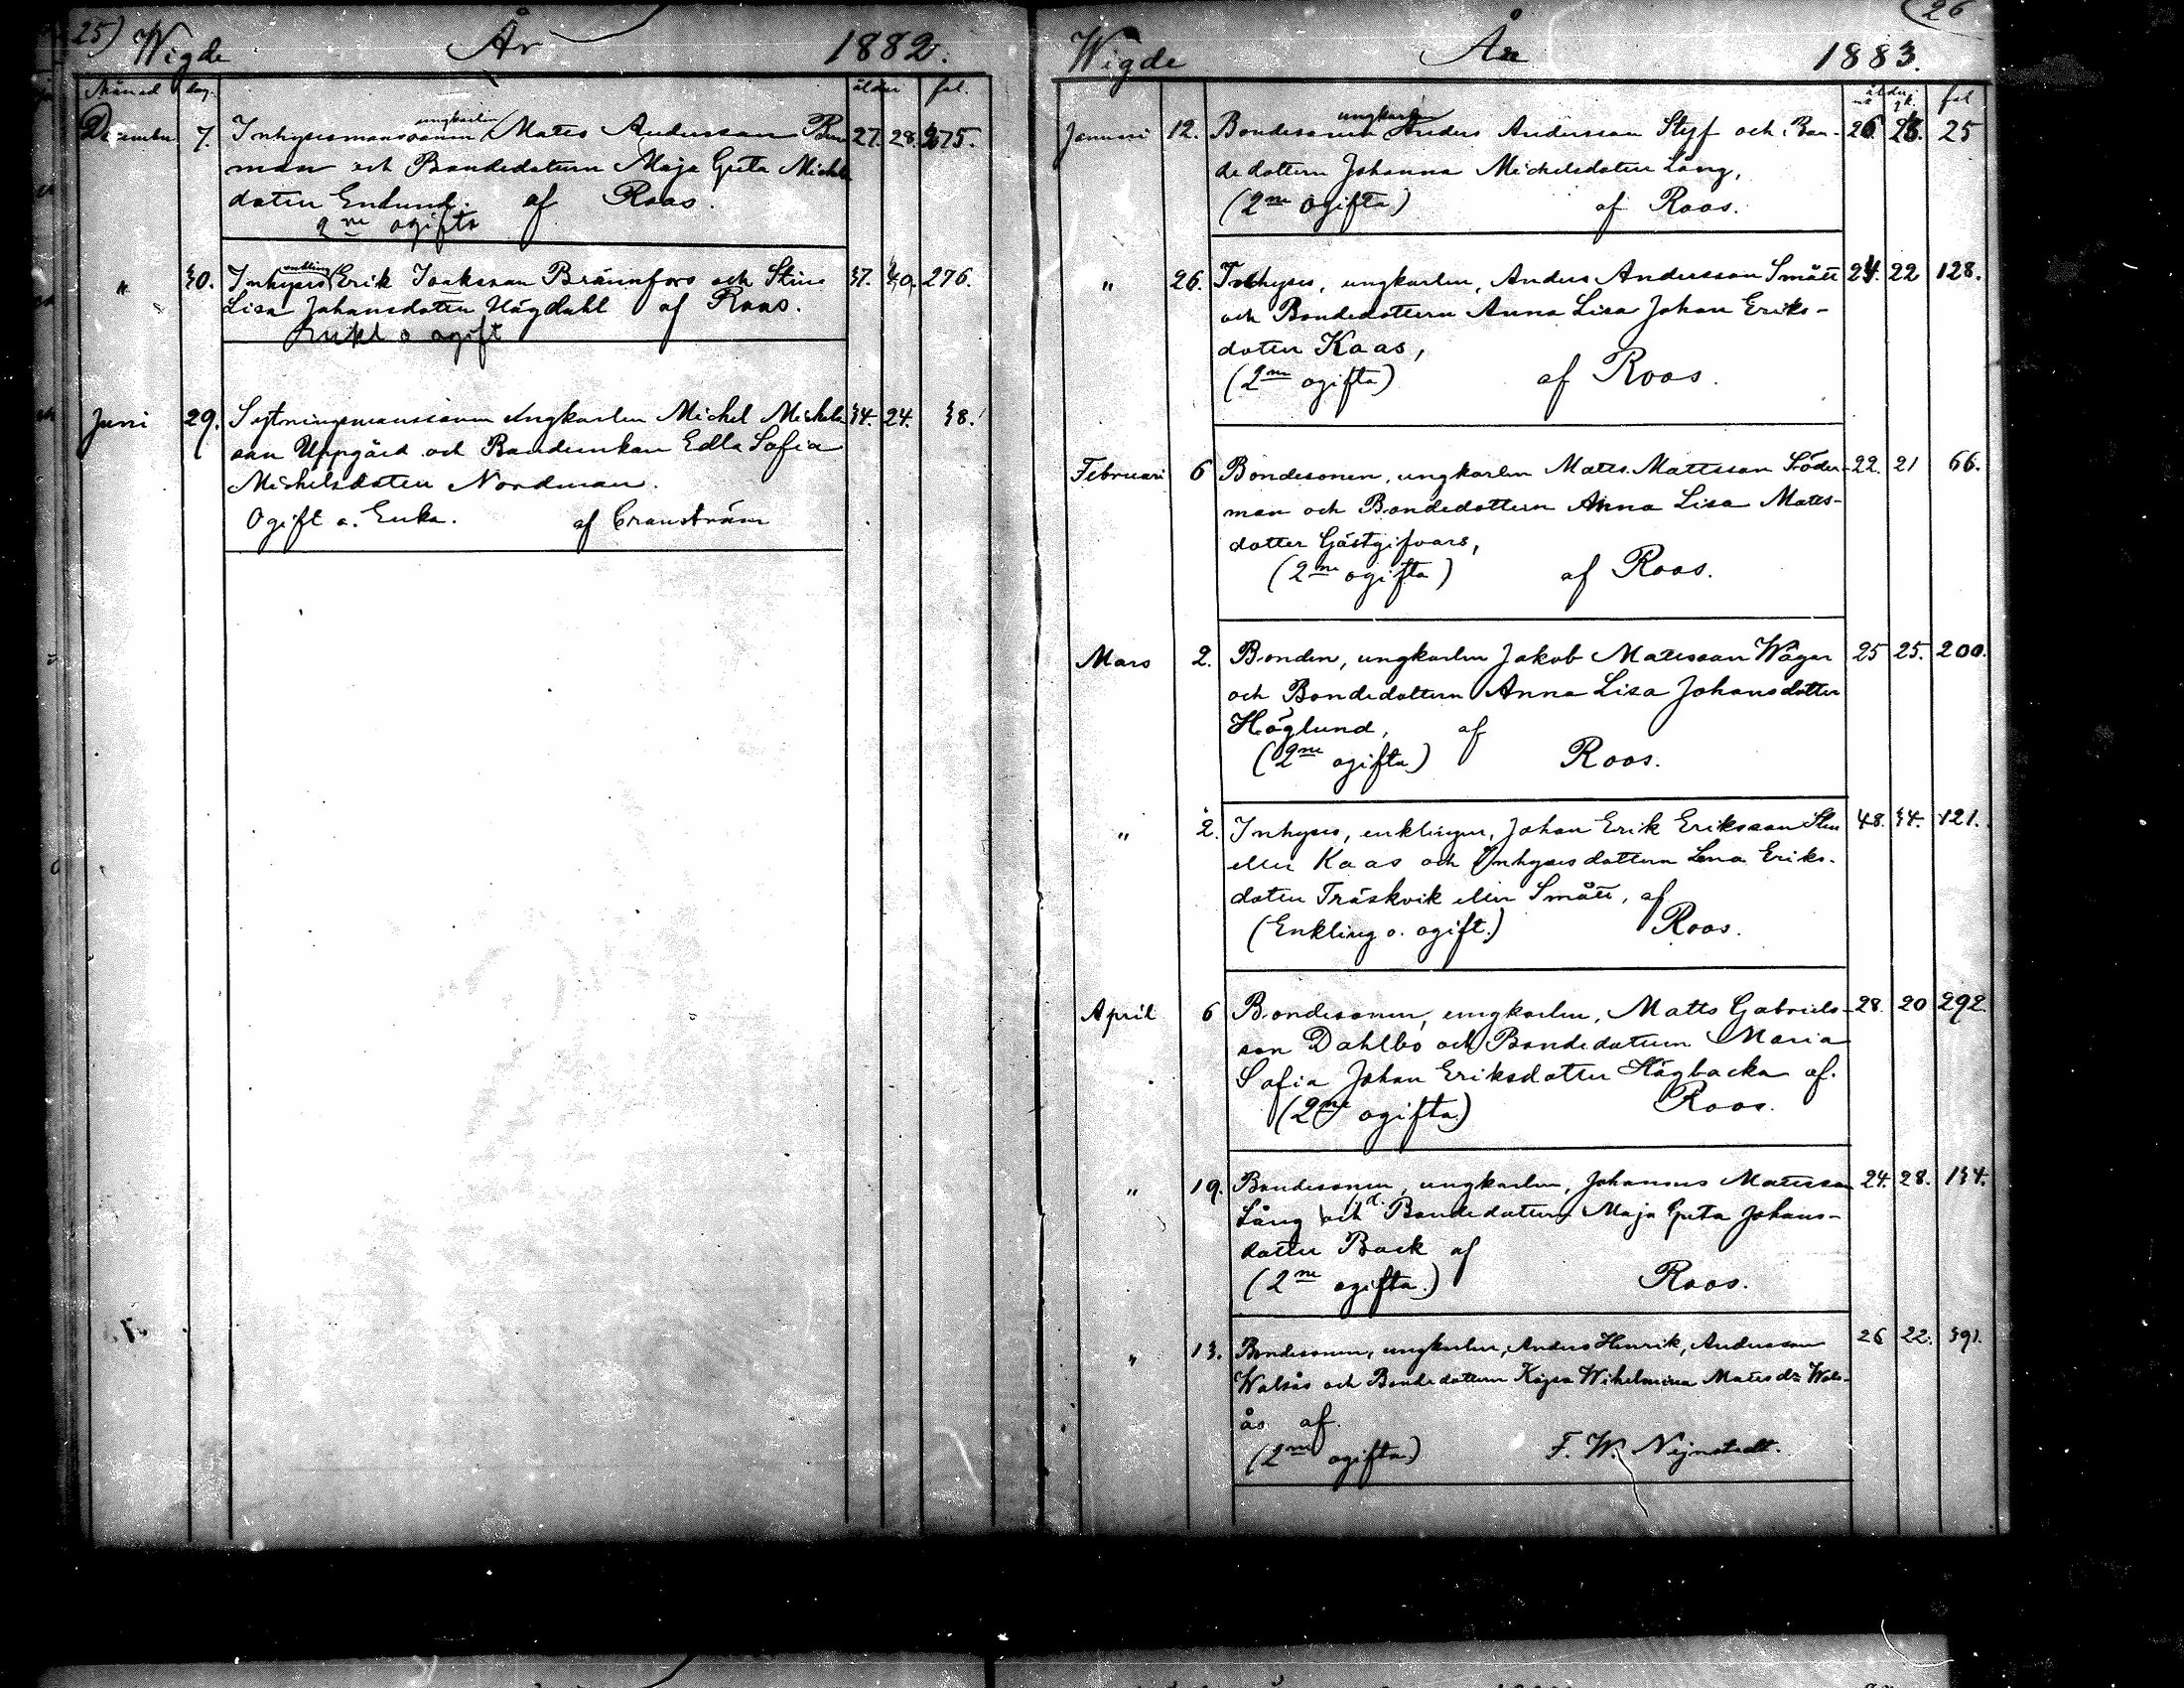 25)
Wigde År 1882.
Månad dag. ålder fol.
December 7. Inhysesmanssonen ungkarlen Mats Andersson Bru- 27. 28. 275.
man och Bondedottern Maja Greta Michels
dotter Enlund. af Roos.
2ne ogifta
" 30. Inhyses enkling Erik Isaksson Brännfors och Stina 37. 40. 276.
Lisa Johansdotter Högdahl af Roos.
Enkl o ogift
Juni 29. Sytningsmanssonen Ungkarlen Michel Michels 34. 24. 38.
son Uppgård och Bondeenkan Edla Sofia
Michelsdotter Nordman.
Ogift o. Enka. af Cranström
26
Wigde År 1883.
ålder fol
Januari 12. Bondesonen ungkarlen Anders Andersson Styf och Bon- 26. 28. 25
dedottern Johanna Michelsdotter Lång,
(2ne ogifta) af Roos.
" 26. Inhyses, ungkarlen, Anders Andersson Smått 24. 22 128.
och Bondedottern Anna Lisa Johan Eriks-
dotter Kaas,
(2ne ogifta) af Roos.
Februari 6 Bondesonen, ungkarlen Mats Mattsson Söder- 22. 21 66.
man och Bondedottern Anna Lisa Mats-
dotter Gästgifvars,
(2ne ogifta) af Roos.
Mars 2. Bonden, ungkarlen Jakob Matsson Wägar 25 25. 200.
och Bondedottern Anna Lisa Johansdotter
Höglund, af
(2ne ogifta) Roos.
" 2. Inhyses, enklingen, Johan Erik Eriksson Sten 48. 34. 121.
eller Kaas och Inhysesdottern Lena Eriks-
dotter Träskvik eller Smått, af
(Enkling o. ogift.) Roos.
April 6 Bondesonen, ungkarlen, Matts Gabriels- 28. 20 292
son Dahlbo och Bondedottern Maria
Sofia Johan Eriksdotter Högbacka af.
(2ne ogifta) Roos.
" 19. Bondesonen, ungkarlen, Johannes Matsson 24. 28. 134.
Lång och d. Bondedottern Maja Greta Johans-
dotter Back af
(2ne ogifta.) Roos.
" 13. Bondesonen, ungkarlen, Anders Henrik, Andersson 26 22. 391.
Walsås och Bondedottern Kajsa Wihelmina Mats dr Wals-
ås af.
(2ne ogifta) F. W. Nynstedt.